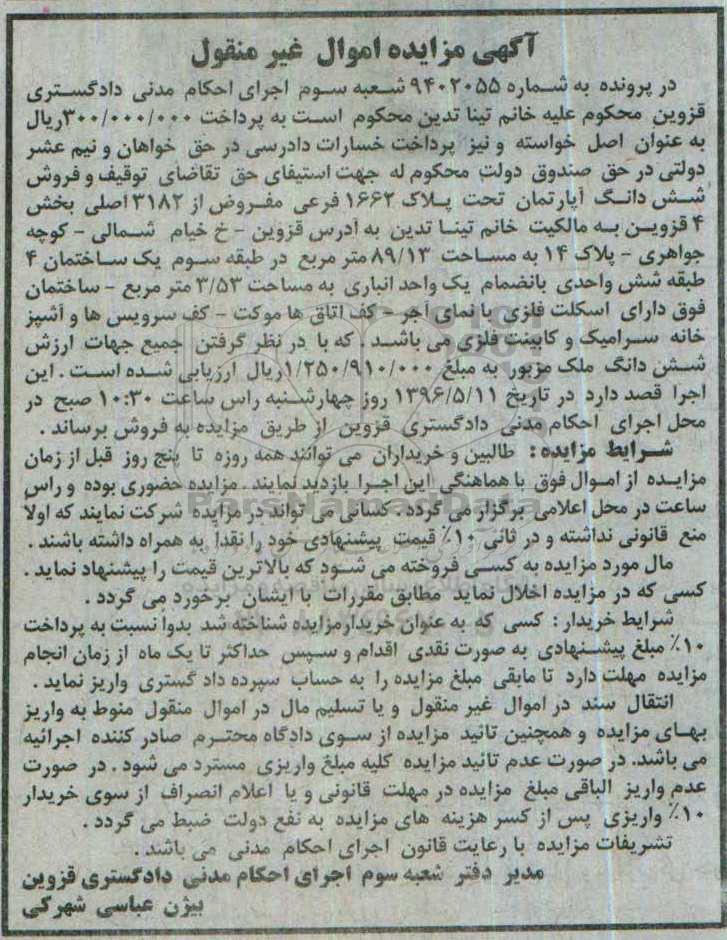 آگهی مزایده اموال غیر منقول
در پرونده به شماره ۹۴۰۲۰۵۵ شعبه سوم اجرای احکام مدنی دادگستری
قزوین محکوم علیه خانم تینا تدین محکوم است به پرداخت ۳۰۰/۰۰۰/۰۰۰ریال
به عنوان اصل خواسته و نیز پرداخت خسارات دادرسی در حق خواهان و نیم عشر
دولتی در حق صندوق دولت محکوم له جهت استیفای حق تقاضای توقیف و فروش
شش دانگ آپارتمان تحت پلاک ۱۶۶۲ فرعی مفروض از ۳۱۸۲ اصلی بخش
۴ قزوین به مالکیت خانم تینا تدین به آدرس قزوین - خ خیام شمالی - کوچه
جواهری - پلاک ۱۴ به مساحت ۸۹/۱۳ متر مربع در طبقه سوم یک ساختمان ۴
طبقه شش واحدی بانضمام یک واحد انباری به مساحت ۳/۵۳ متر مربع - ساختمان
فوق دارای اسکلت فلزی با نمای آجر - کف اتاق ها موکت - کف سرویس ها و آشپز
خانه سرامیک و کابینت فلزی می باشد . که با در نظر گرفتن جمیع جهات ارزش
شش دانگ ملک مزبور به مبلغ ۱/۲۵۰/۹۱۰/۰۰۰ریال ارزیابی شده است . این
اجرا قصد دارد در تاریخ ۱۳۹۶/۵/۱۱ روز چهارشنبه راس ساعت ۱۰:۳۰ صبح در
محل اجرای احکام مدنی دادگستری قزوین از طریق مزایده به فروش برساند .
شرایط مزایده : طالبین و خریداران می توانند همه روزه تا پنج روز قبل از زمان
مزایده از اموال فوق با هماهنگی این اجرا بازدید نمایند . مزایده حضوری بوده و راس
ساعت در محل اعلامی برگزار می گردد . کسانی می تواند در مزایده شرکت نمایند که اولاً
منع قانونی نداشته و در ثانی ۱۰٪ قیمت پیشنهادی خود را نقداً به همراه داشته باشند .
مال مورد مزایده به کسی فروخته می شود که بالاترین قیمت را پیشنهاد نماید .
کسی که در مزایده اخلال نماید مطابق مقررات با ایشان برخورد می گردد .
شرایط خریدار : کسی که به عنوان خریدارمزایده شناخته شد بدوا نسبت به پرداخت
۱۰٪ مبلغ پیشنهادی به صورت نقدی اقدام و سپس حداکثر تا یک ماه از زمان انجام
مزایده مهلت دارد تا مابقی مبلغ مزایده را به حساب سپرده داد گستری واریز نماید .
انتقال سند در اموال غیر منقول و یا تسلیم مال در اموال منقول منوط به واریز
بهای مزایده و همچنین تائید مزایده از سوی دادگاه محترم صادر کننده اجرائیه
می باشد. در صورت عدم تائید مزایده کلیه مبلغ واریزی مسترد می شود . در صورت
عدم واریز الباقی مبلغ مزایده در مهلت قانونی و یا اعلام انصراف از سوی خریدار
۱۰٪ واریزی پس از کسر هزینه های مزایده به نفع دولت ضبط می گردد .
تشریفات مزایده با رعایت قانون اجرای احکام مدنی می باشد .
مدیر دفتر شعبه سوم اجرای احکام مدنی دادگستری قزوین
بیژن عباسی شهرکی
ParsNamadData